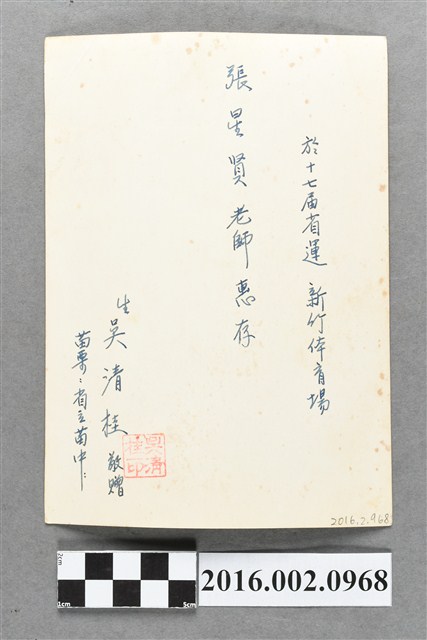 於十七届省運 新竹体育場
張星賢老師惠存
生 吳清桂 敬贈
苗栗：省立苗中：
吳清桂印
2016.2.968
2cm
1cm
5cm
2016.002.0968